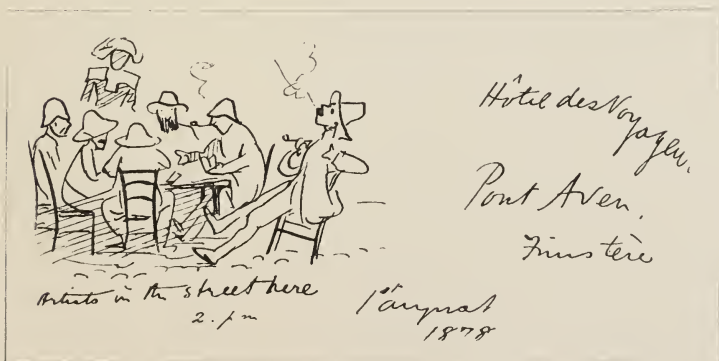 Hôtel des Voyageu.
Pont Aven.
Finistère
Artists in the street here
2. pm
1st August
1878